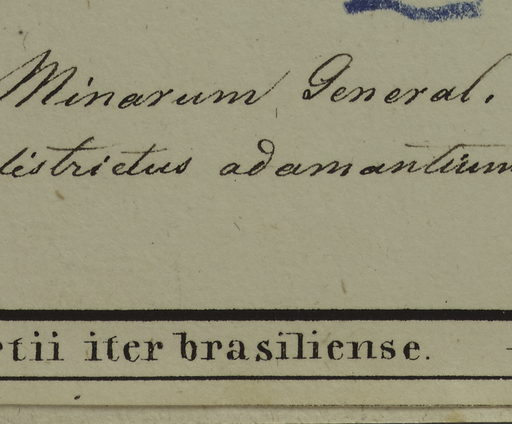 Minarum General.
districtus adamantium
rtii iter brasiliense.